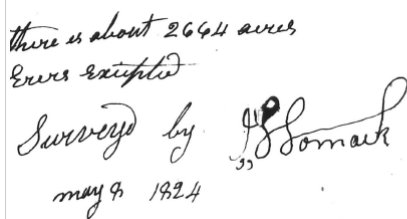 there is about 2664 acres
Erors Excepted
Survey'd by
may 8 1824